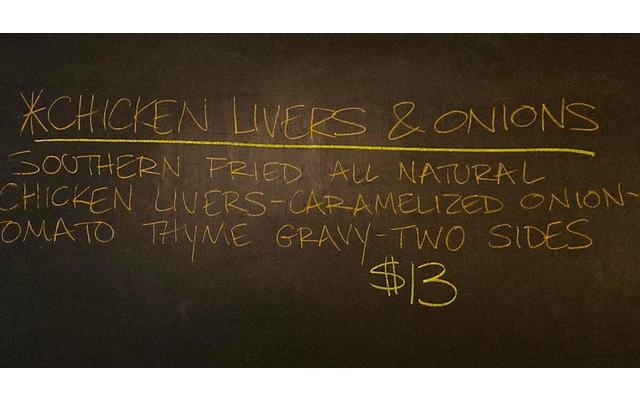 *CHICKEN LIVERS & ONIONS
SOUTHERN FRIED ALL NATURAL
CHICKEN LIVERS-CARAMELIZED ONION-
OMATO THYME GRAVY-TWO SIDES
$13